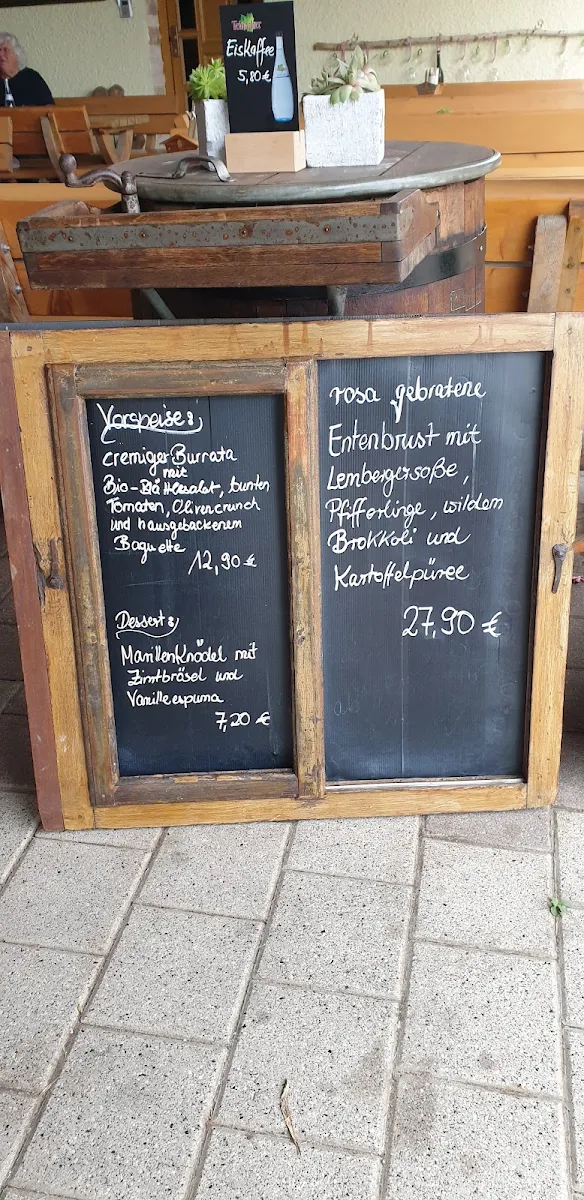 Eiskaffee
5,80€
Vorspeise:
cremiger Burrata
mit
Bio-Blattlesalat, bunten
Tomaten, Olivencrunch
und hausgebackenem
Baguette
12,90 €
Dessert:
Marillenknödel mit
Zimtbrösel und
Vanilleespuma
7,20 €
rosa gebratene
Entenbrust mit
Lembergersoße,
Pfifferlinge, wildem
Brokkoli und
Kartoffelpüree
27,90 €